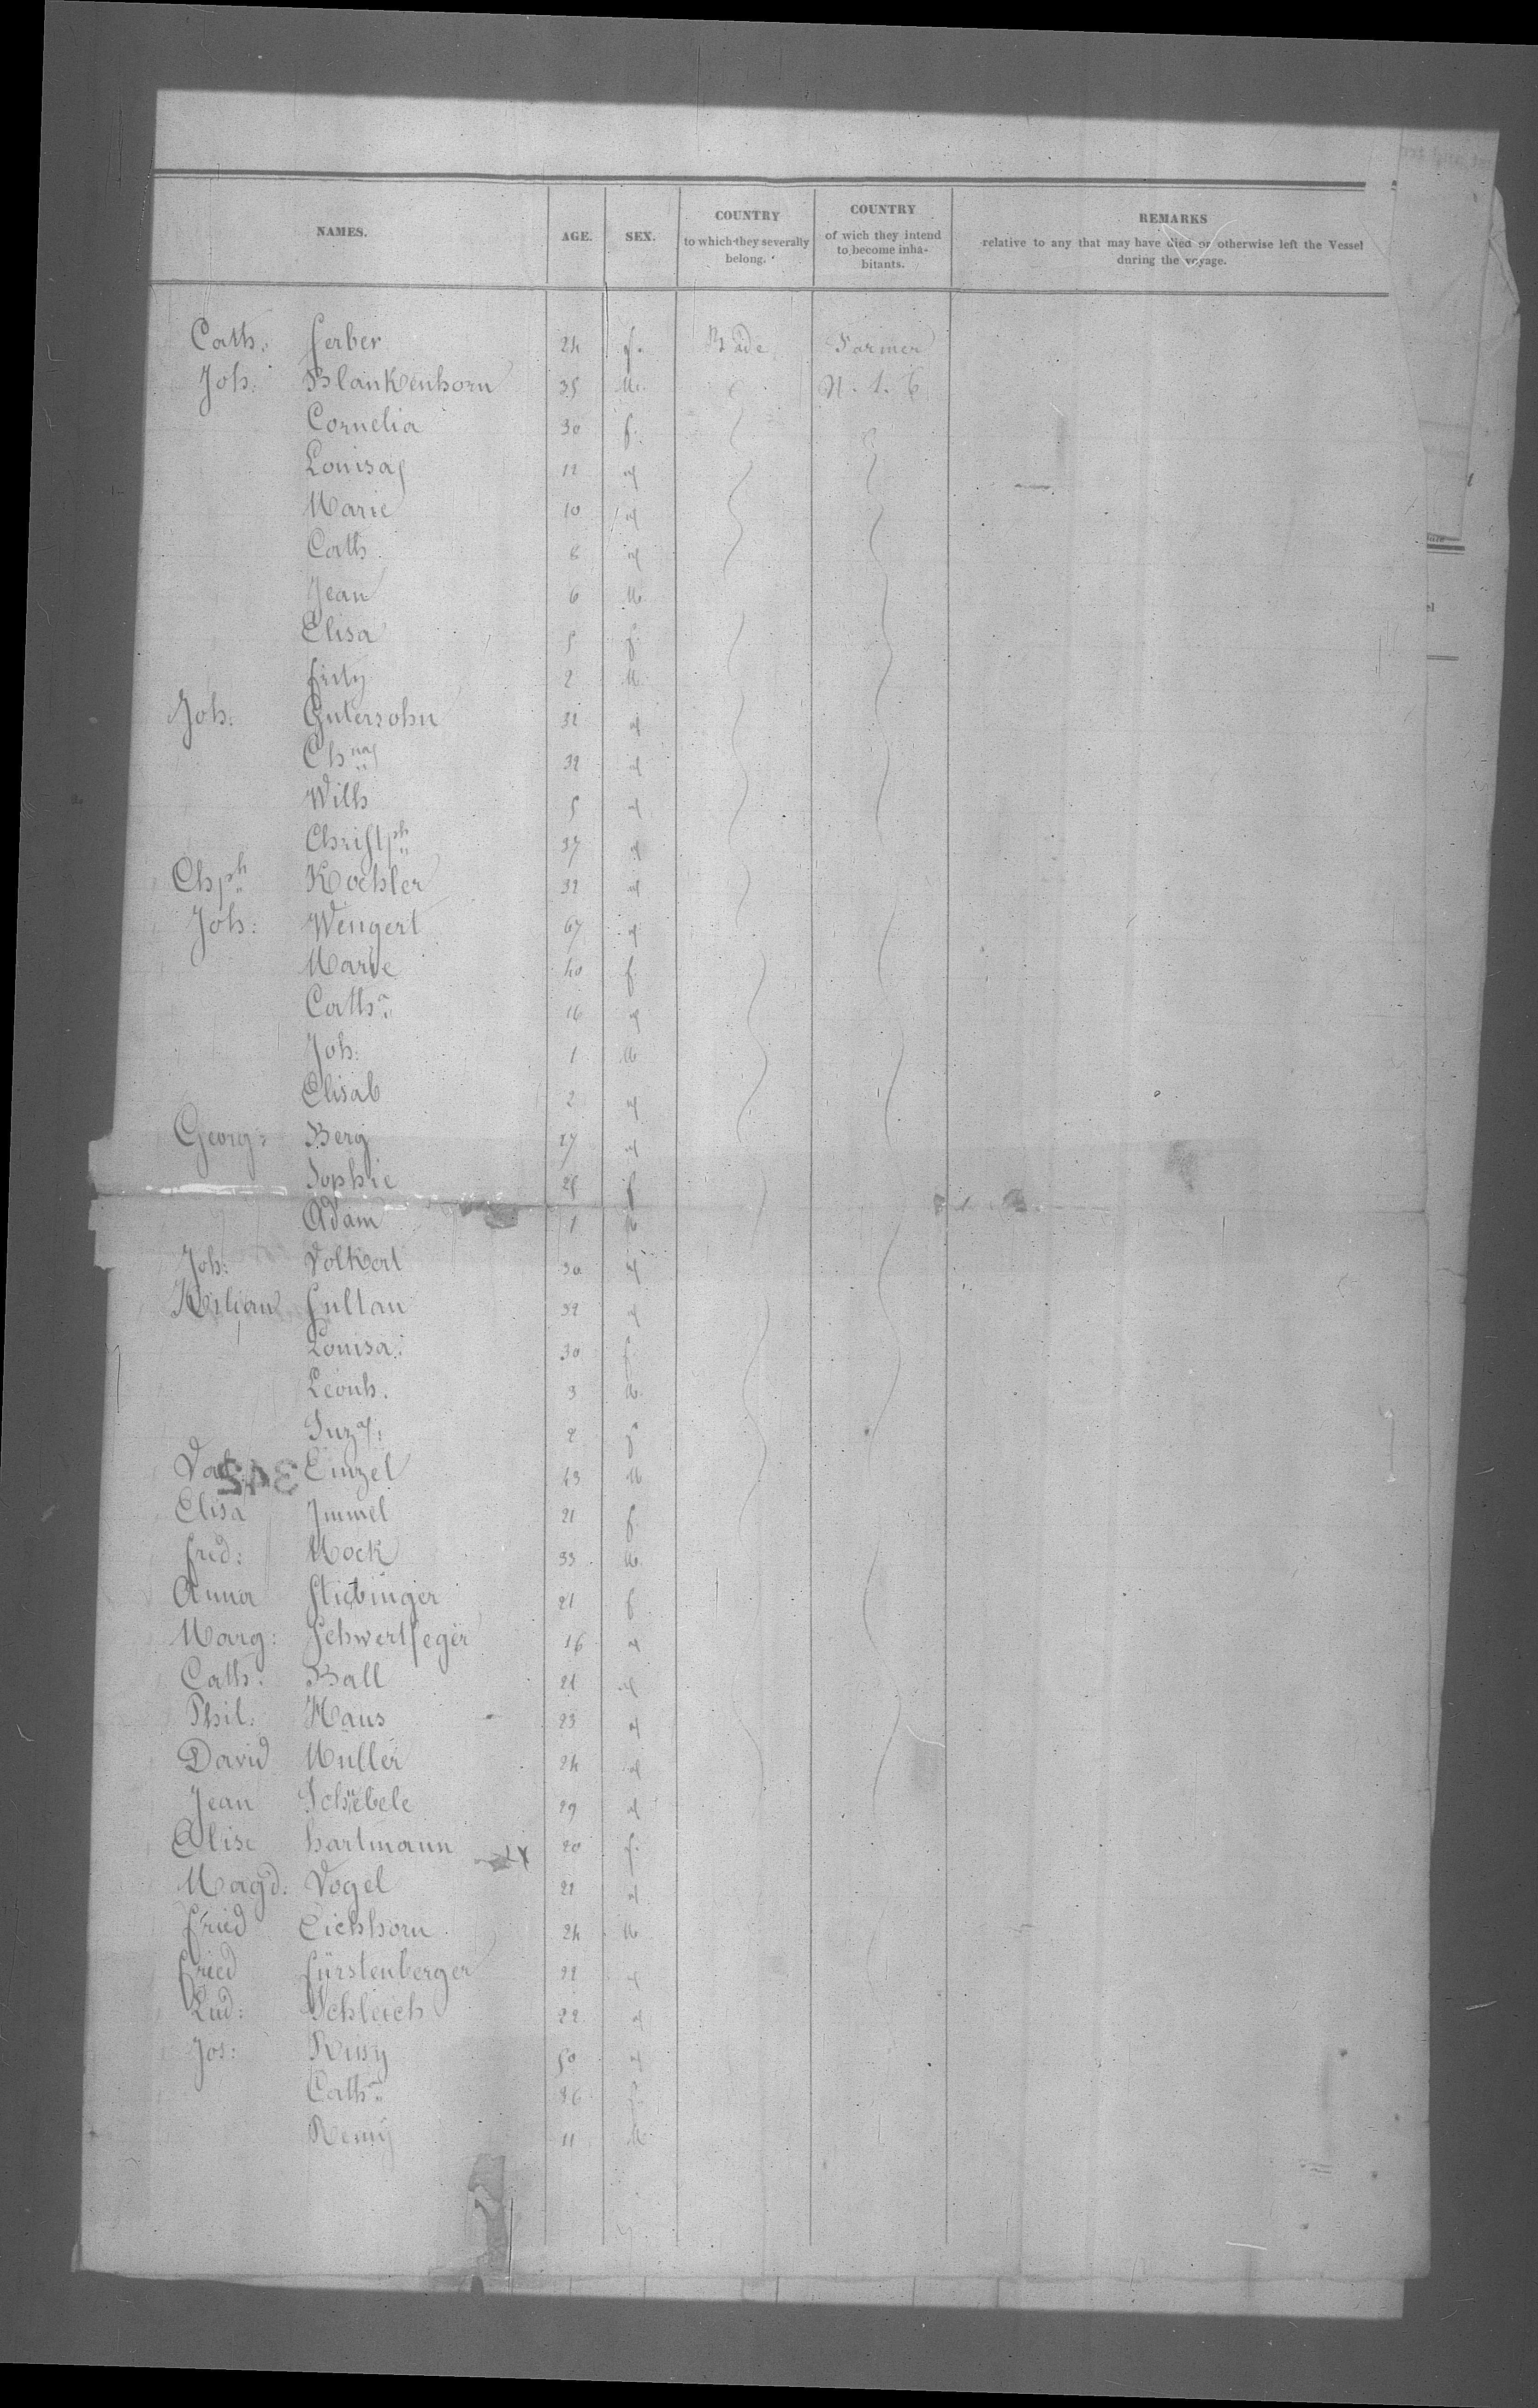 NAMES. AGE. SEX. COUNTRY to which they severally belong. COUNTRY of wich they intend to become inhabitants. REMARKS relative to any that may have died or otherwise left the Vessel during the voyage.
Cath: Ferber 24 f. Bade Farmer
Joh: Blankenhorn 35 M.
Cornelia 30 f.
Louisa 12 id
Marie 10 id
Cath 8 id
Jean 6 M.
Elisa 5 f.
Fritz 2 M.
Joh: Gutersohn 32 id
Ch^na 32 id
Wilh 5 id
Christ^ph 37 id
Ch^ph Koehler 32 id
Joh: Wengert 67 id
Marie 40 f.
Cath^a 16 id
Joh: 1 M
Elisab 2 id
Georg: Berg 27 id
Sophie 25 f
Adam 1 M
Joh: Volkert 30 id
Kilian 32 id
Louisa: 30 f.
Leonh. 3 M.
Suz^a: 2 f
342
Einzel 43 M
Elisa Immel 21 f.
Fred: Mock 33 M.
Anna Stiebinger 21 f
Marg: Schwertfeger 16 id
Cath: Ball 21 id
Phil: Haus 23 id
David Müller 24 id
Jean 29 id
Elise Hartmann 20 f.
Magd: Vogel id
Fried Eichhorn 24 M
Fried Fürstenberger id
Lud: Schleich 22 id
Jos: 50 id
Cath^a 36 f.
Remy 11 M